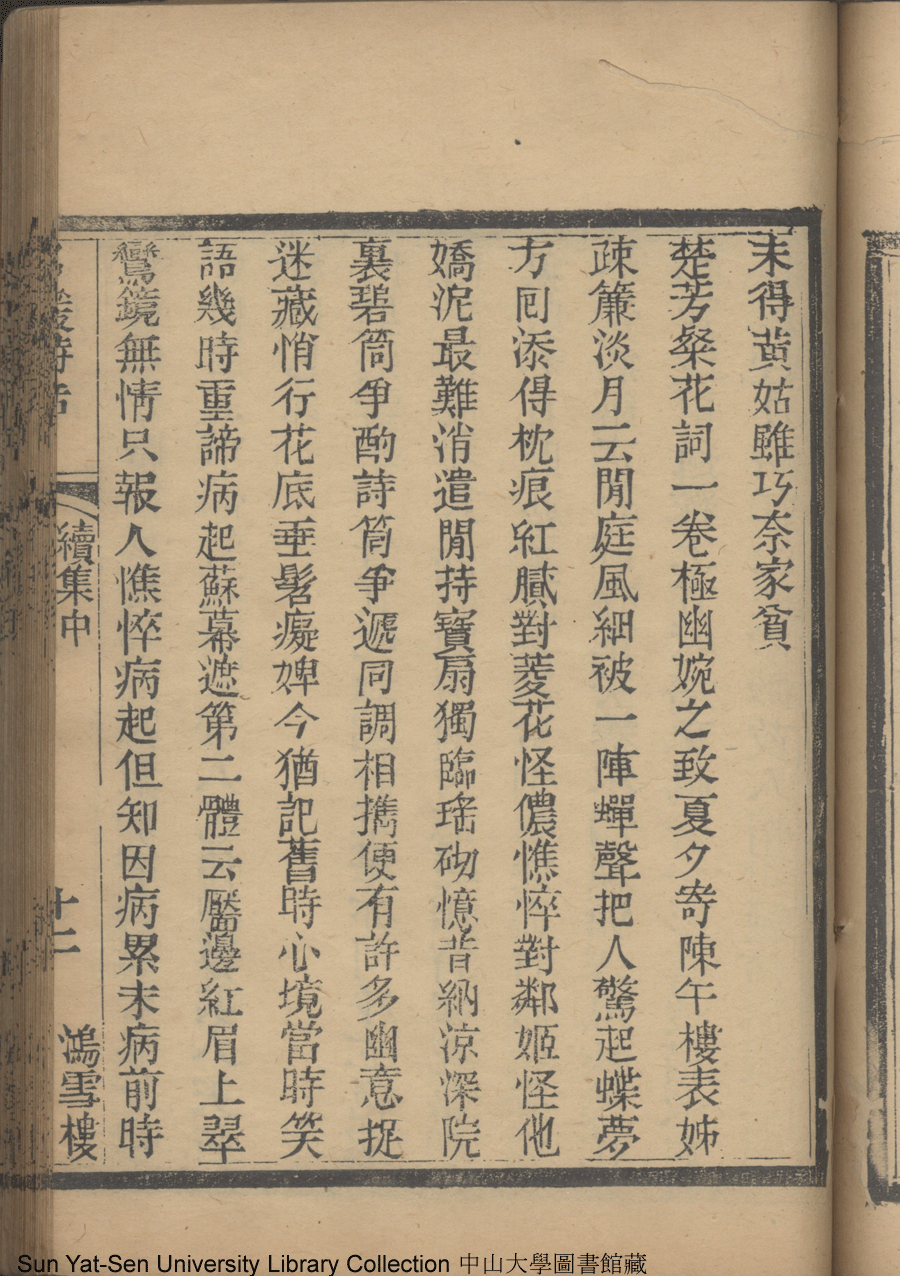 未得黄姑雖巧奈家貧
楚芳粲花詞一卷極幽婉之致夏夕寄陳午樓表姊
疎簾淡月云閒庭風細被一陣蟬聲把人驚起蝶夢
方囘添得枕痕紅膩對菱花怪儂憔悴對鄰姬怪他
嬌泥最難消遣閒持寶扇獨臨瑤砌憶昔納涼深院
裏碧筒爭酌詩筒爭遞同調相攜便有許多幽意捉
迷藏悄行花底垂髫癡婢今猶記舊時心境當時笑
語幾時重諦病起蘇幕遮第二體云靨邊紅眉上翠
鸞鏡無情只報人憔悴病起但知因病累未病前時
詩話 續集中 十二 鴻雪樓
Sun Yat-Sen University Library Collection 中山大學圖書館藏